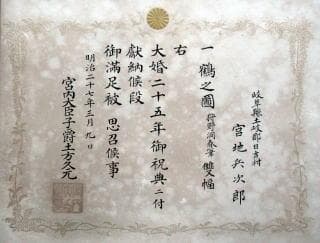 岐阜縣土岐郡日吉村
宮地兵次郎
一鶴之圖 狩野洞春筆 雙幅
右
大婚二十五年御祝典ニ付
獻納候段
御滿足被 思召候事
明治二十七年三月九日
宮內大臣子爵土方久元